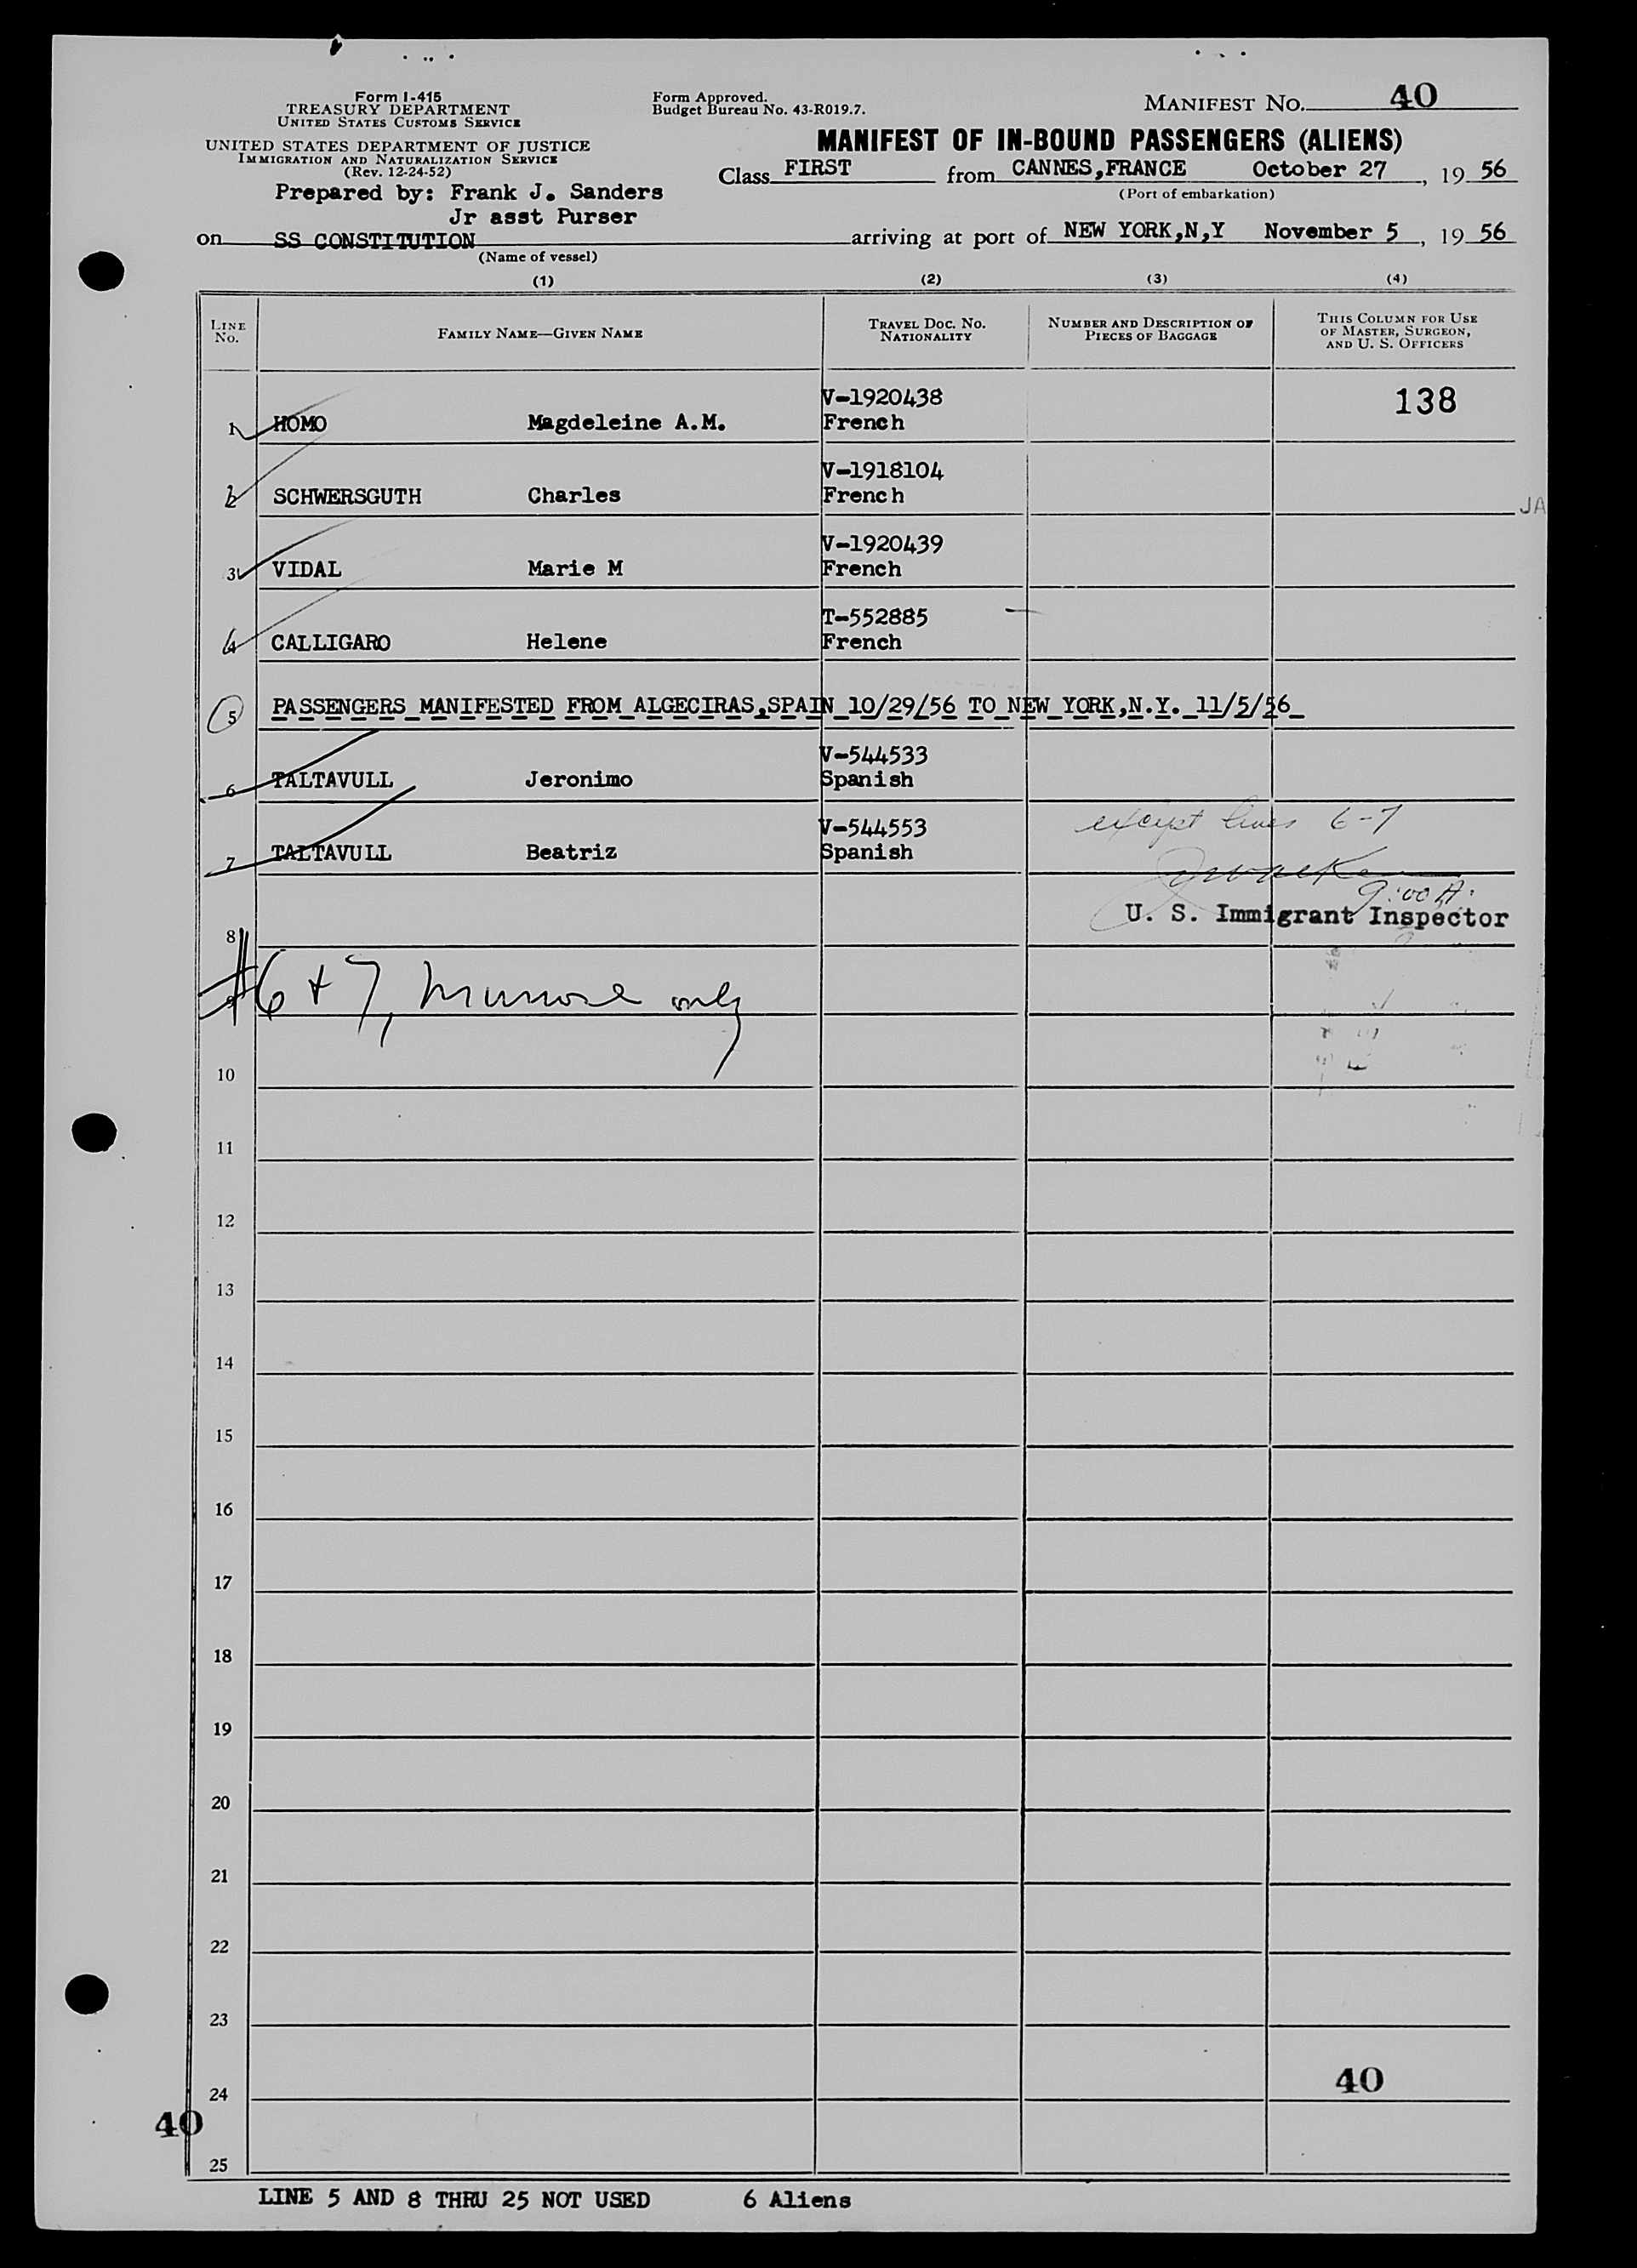 Form I-415
TREASURY DEPARTMENT
UNITED STATES CUSTOMS SERVICE
UNITED STATES DEPARTMENT OF JUSTICE
IMMIGRATION AND NATURALIZATION SERVICE
(Rev. 12-24-52)
Form Approved.
Budget Bureau No. 43-R019.7.
MANIFEST NO. 40
MANIFEST OF IN-BOUND PASSENGERS (ALIENS)
Class FIRST from CANNES,FRANCE October 27, 19 56
(Port of embarkation)
Prepared by: Frank J. Sanders
Jr asst Purser
on SS CONSTITUTION arriving at port of NEW YORK,N,Y November 5, 19 56
(Name of vessel)
(1) (2) (3) (4)
LINE No. FAMILY NAME—GIVEN NAME TRAVEL DOC. NO. NATIONALITY NUMBER AND DESCRIPTION OF PIECES OF BAGGAGE THIS COLUMN FOR USE OF MASTER, SURGEON, AND U. S. OFFICERS
138
V-1920438
1 HOMO Magdeleine A.M. French
V-1918104
2 SCHWERSGUTH Charles French
JA
V-1920439
3 VIDAL Marie M French
T-552885
4 CALLIGARO Helene French
5 PASSENGERS MANIFESTED FROM ALGECIRAS,SPAIN 10/29/56 TO NEW YORK,N.Y. 11/5/56
V-544533
6 TALTAVULL Jeronimo Spanish
except lines 6-7
V-544553
7 TALTAVULL Beatriz Spanish
9:00 A.
U. S. Immigrant Inspector
8
#6 + 7, only
9
10
11
12
13
14
15
16
17
18
19
20
21
22
23
40
24
40
25
LINE 5 AND 8 THRU 25 NOT USED 6 Aliens